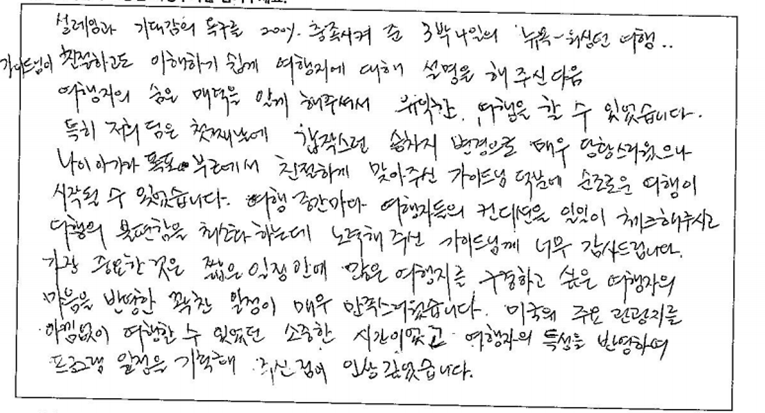 설레임과 기대감의 욕구를 200% 충족시켜 준 3박4일의 뉴욕-워싱턴 여행..
가이드님이 친절하고도 이해하기 쉽게 여행지에 대해 설명을 해 주신다음
여행지의 숨은 매력을 알게 해주셔서 유익한 여행을 할 수 있었습니다.
특히 저희 팀은 첫째날에 갑작스런 승하지 변경으로 매우 당황스러웠으나
나이아가라 폭포 부근에서 친절하게 맞아주신 가이드님 덕분에 순조로운 여행이
시작될 수 있었습니다. 여행 중간마다 여행자들의 컨디션을 일일이 체크해주시고
여행의 불편함을 최소화하는데 노력해 주신 가이드님께 너무 감사드립니다.
가장 중요한 것은 짧은 일정 안에 많은 여행지를 구경하고 싶은 여행자의
마음을 반영한 꽉찬 일정이 매우 만족스러웠습니다. 미국의 주요 관광지를
아낌없이 여행할 수 있었던 소중한 시간이었고 여행자의 특성을 반영하여
프로그램 일정을 기획해 주신점이 인상 깊었습니다.